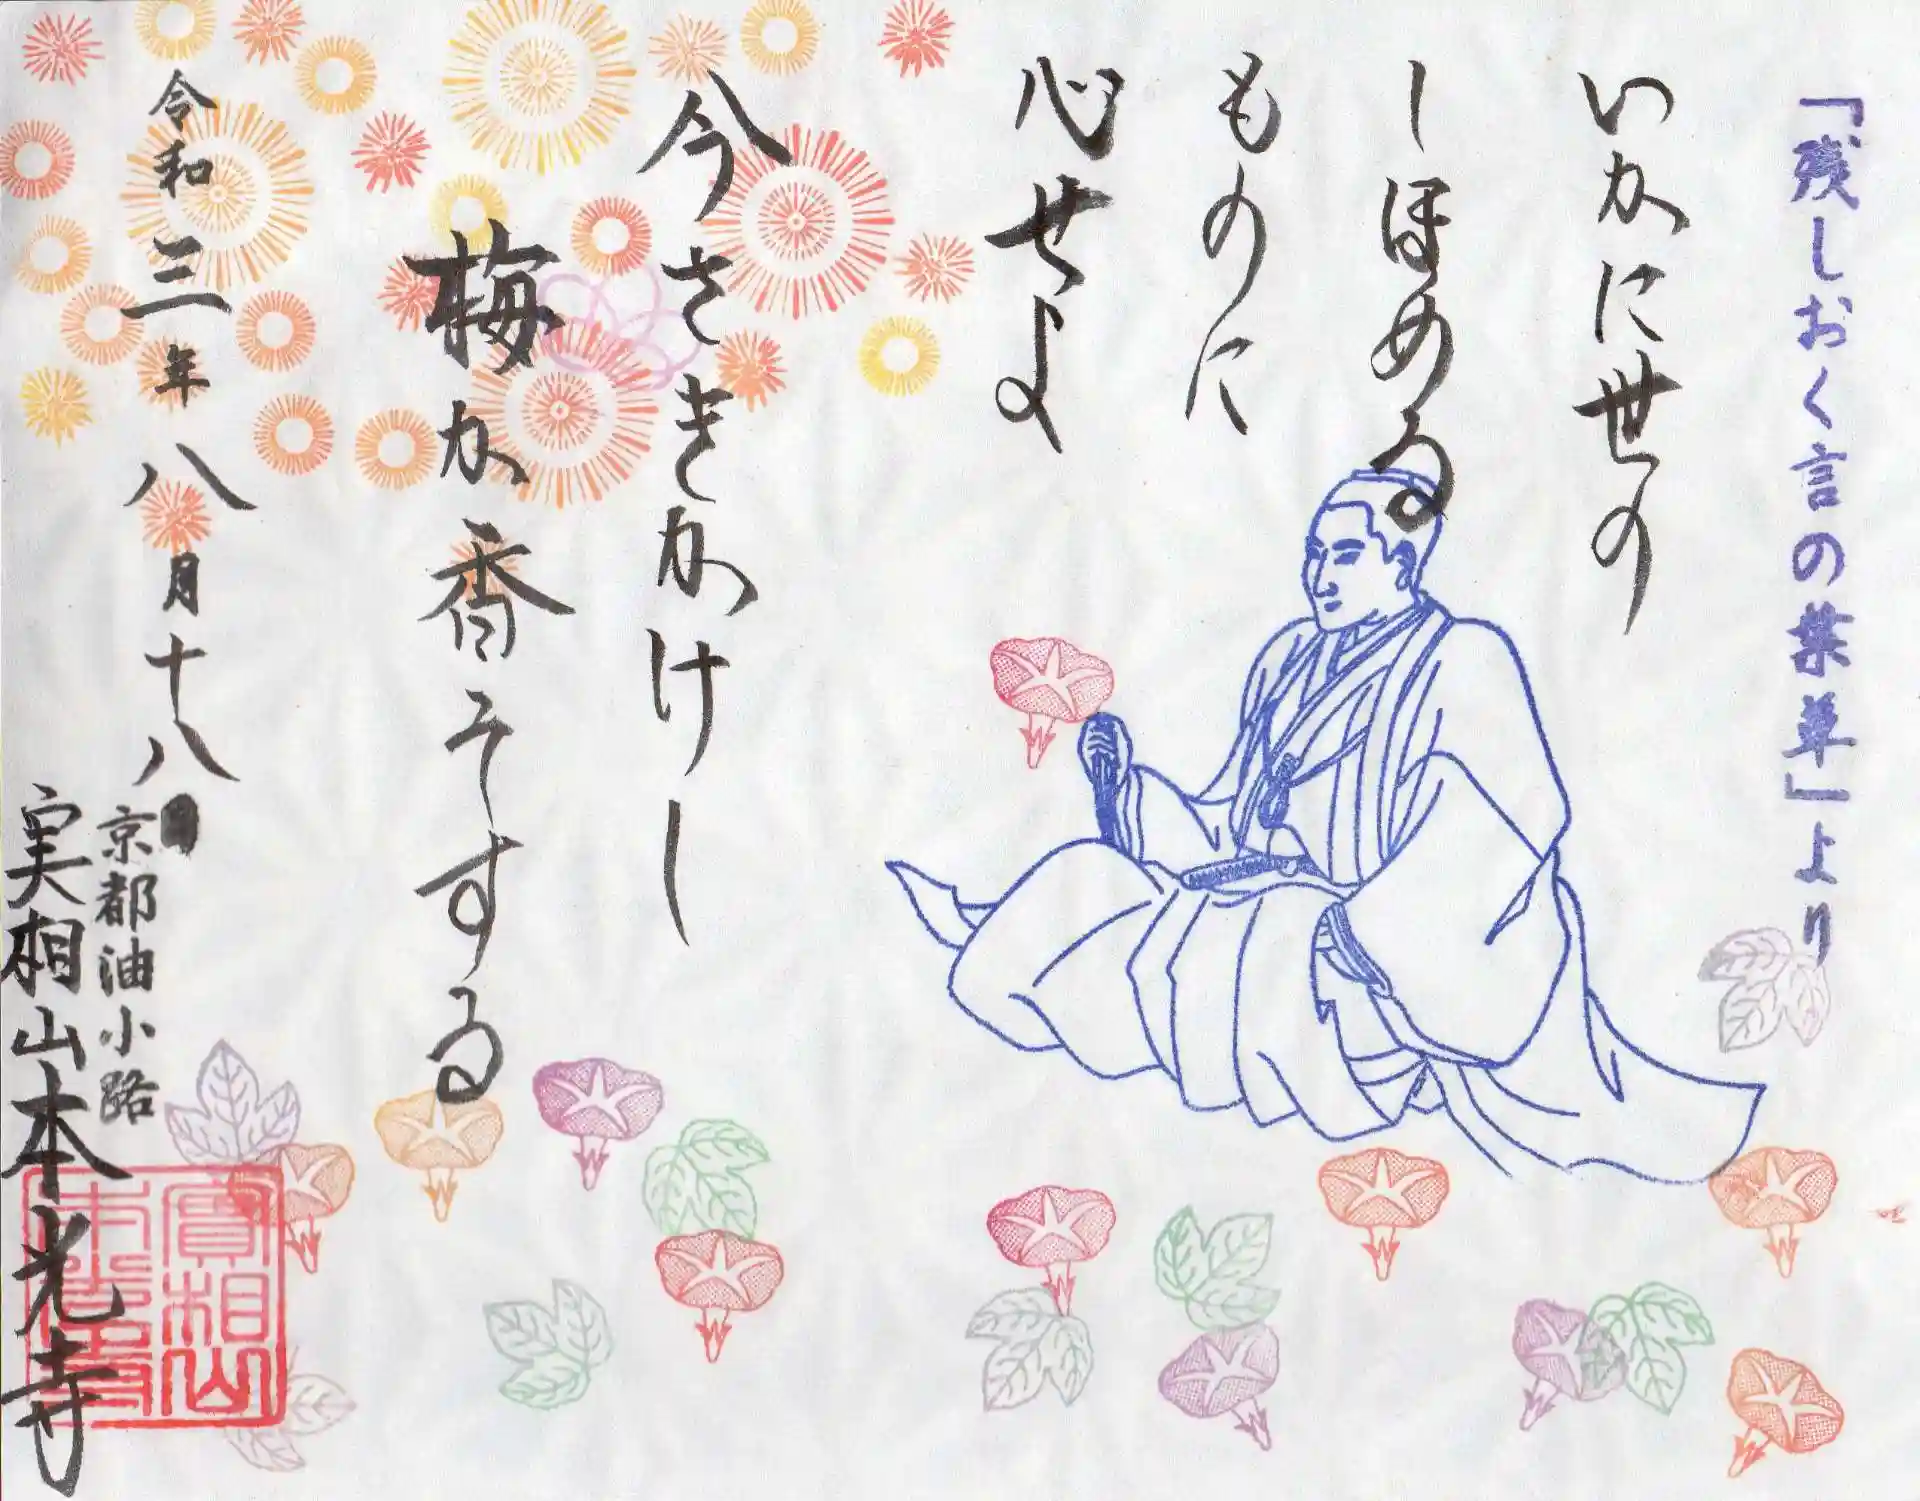 「残しおく言の葉草」より
いかに世の
しほめる
ものに
心せよ
今さきかけし
梅か香そする
令和三年八月十八日
京都油小路
実相山本光寺
實相山
本光寺